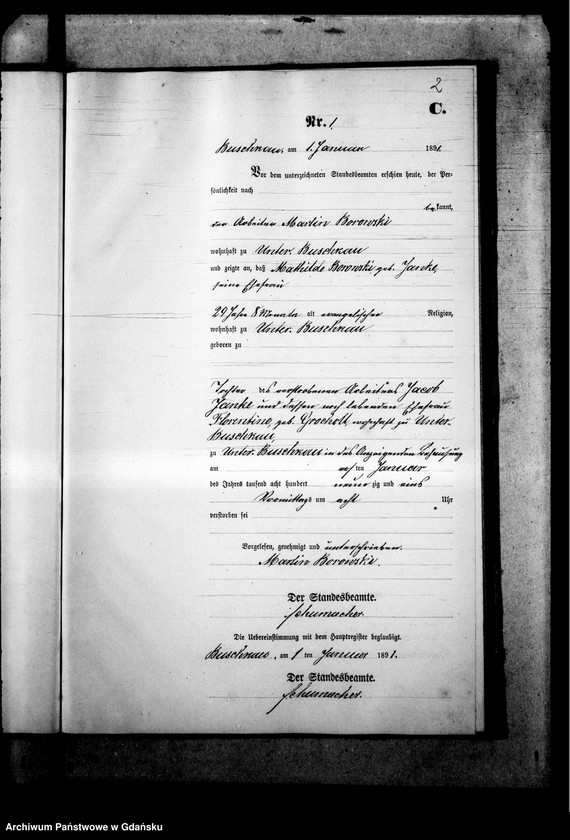 2
C.
Nr. 1.
Buschkau, am 1. Januar 1891.
Vor dem unterzeichneten Standesbeamten erschien heute, der Per-
sönlichkeit nach
bekannt,
der Arbeiter Martin Borowski
wohnhaft zu Unter. Buschkau
und zeigte an, daß Mathilde Borowski geb. Janke,
seine Ehefrau
29 Jahr 8 Monate alt evangelischer Religion,
wohnhaft zu Unter. Buschkau
geboren zu
Tochter des verstorbenen Arbeiters Jacob
Janke und dessen noch lebenden Ehefrau
Florentine, geb. Grocholl, wohnhaft zu Unter.
Buschkau,
zu Unter. Buschkau in des Anzeigenden Behausung
am ersten Januar
des Jahres tausend acht hundert neun zig und eins
Vormittags um acht Uhr
verstorben sei
Vorgelesen, genehmigt und unterschrieben.
Martin Borowski.
Der Standesbeamte.
Schumacher
Die Uebereinstimmung mit dem Hauptregister beglaubigt.
Buschkau, am 1 ten Januar 1891.
Der Standesbeamte.
Schumacher.
Archiwum Państwowe w Gdańsku